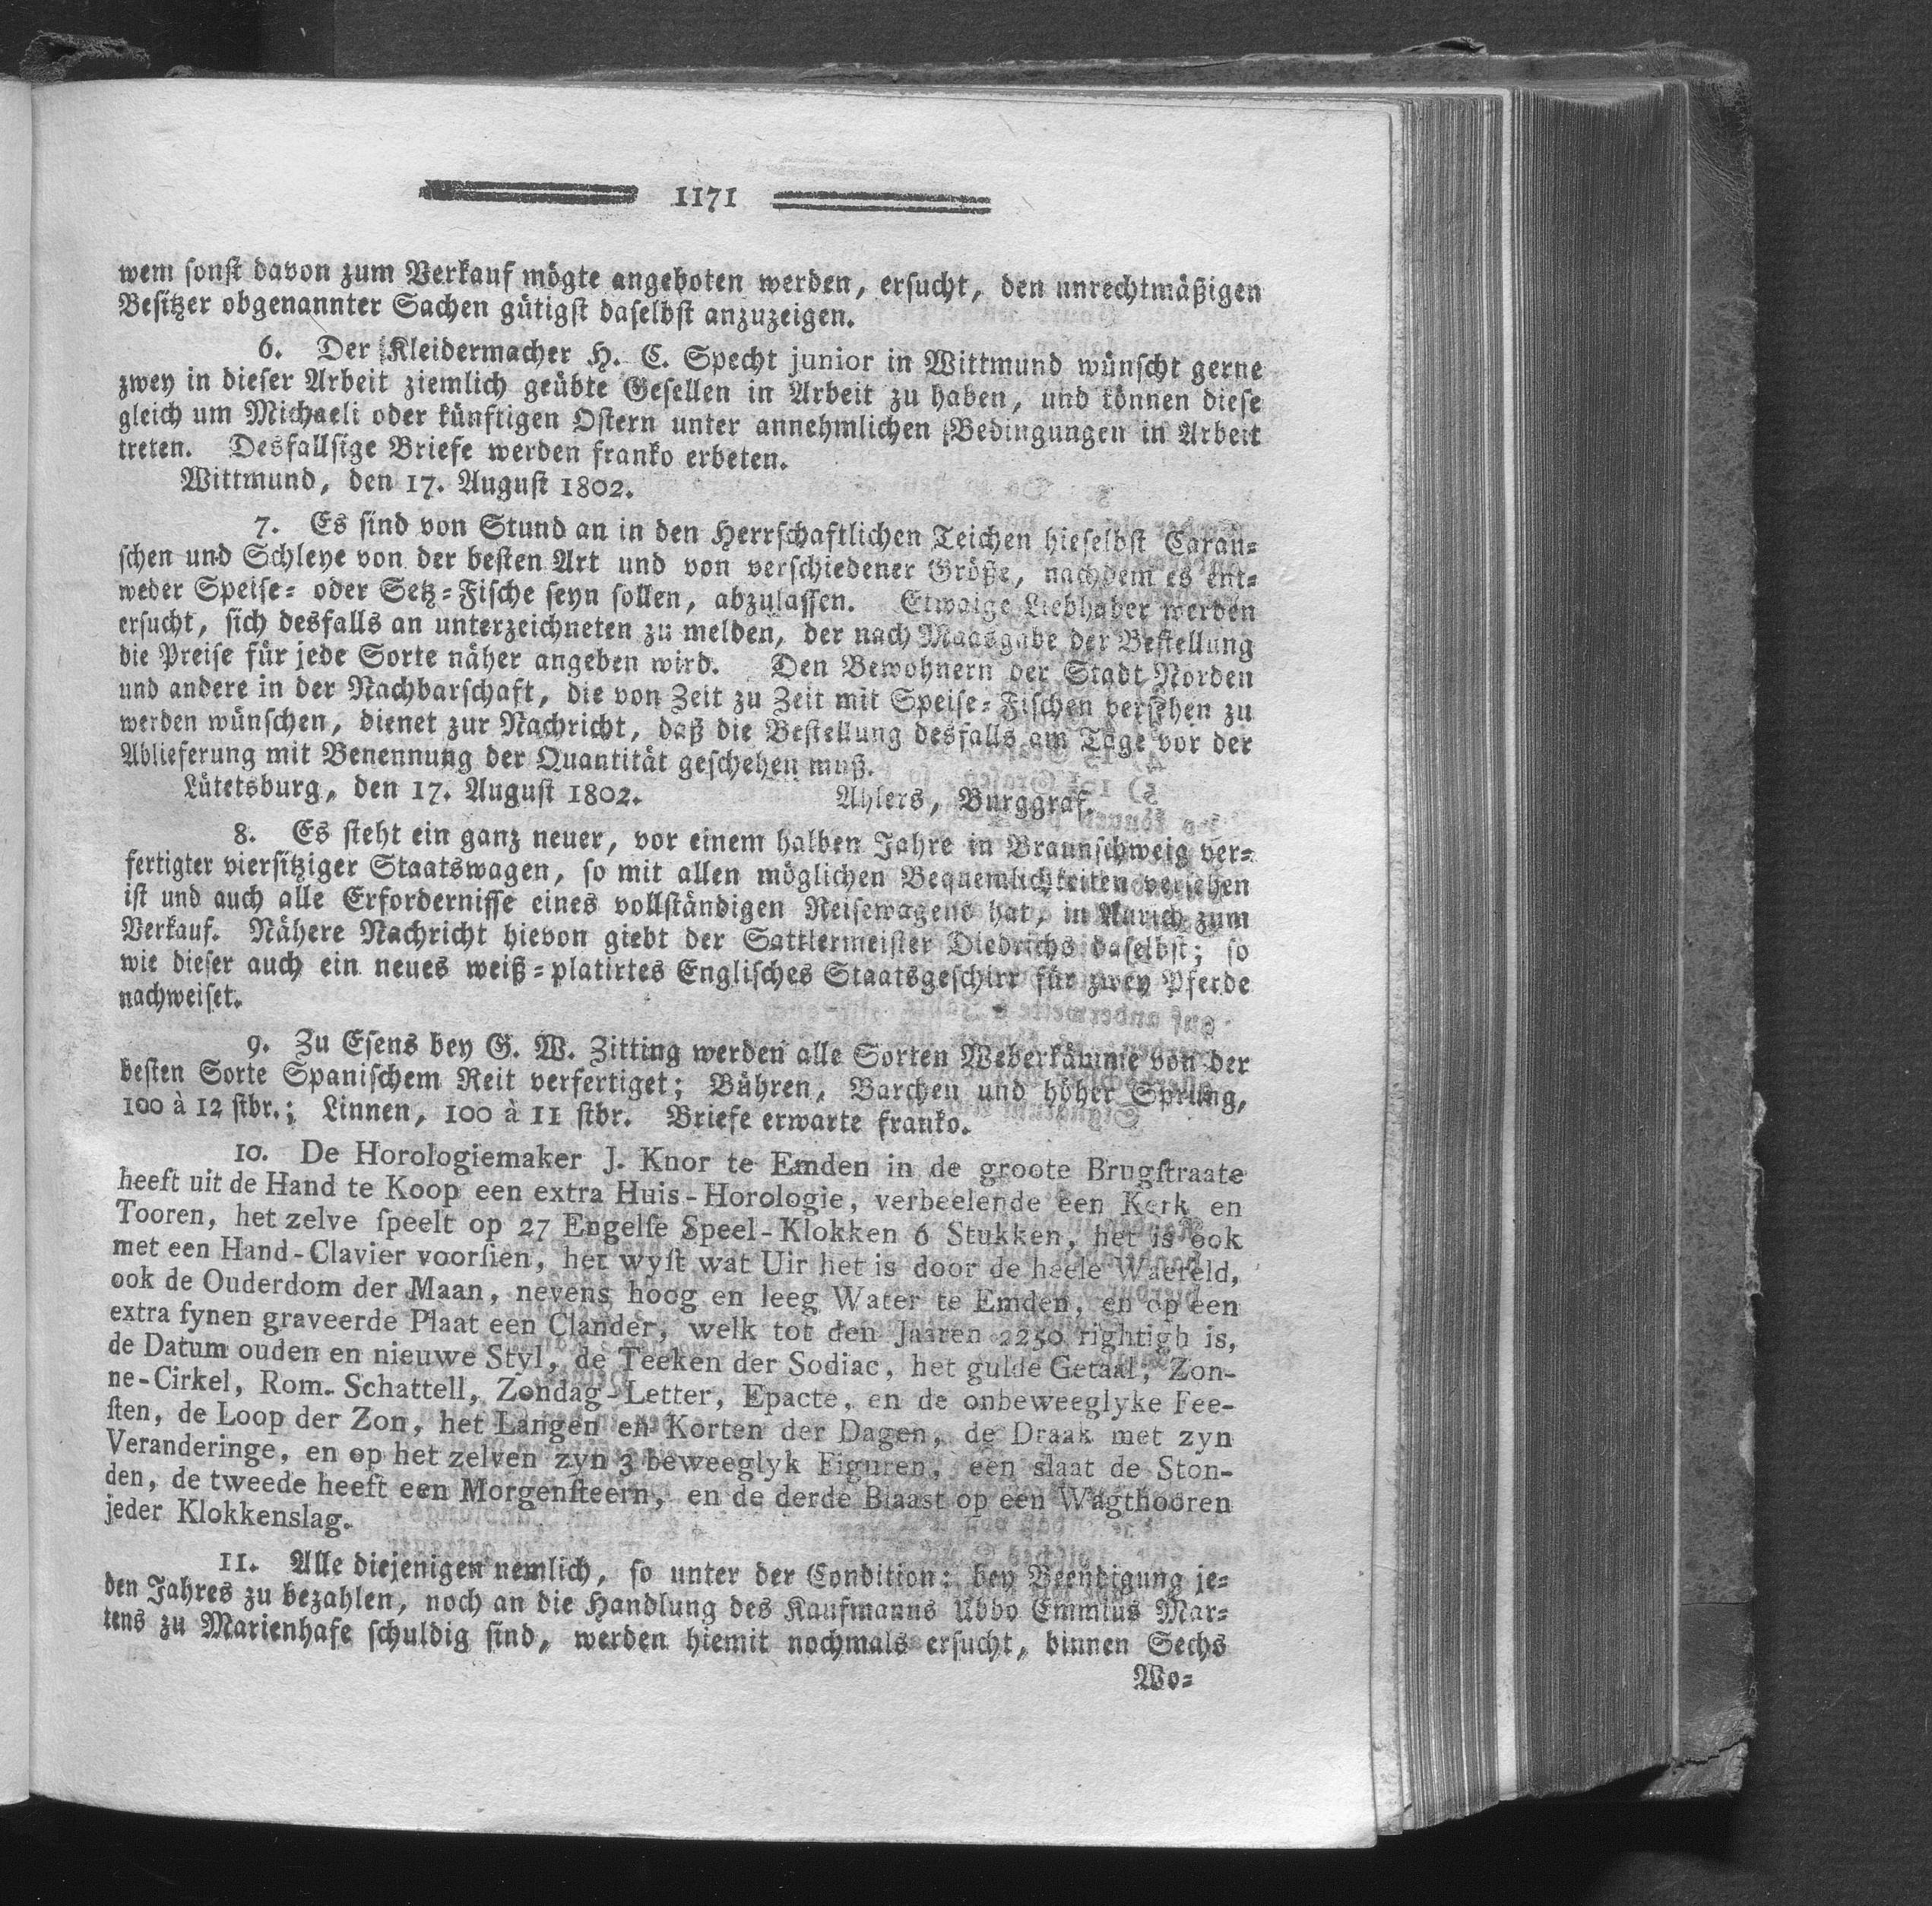 1171
wem sonst davon zum Verkauf mögte angeboten werden, ersucht, den unrechtmäßigen
Besitzer obgenannter Sachen gütigst daselbst anzuzeigen.
6. Der Kleidermacher H. C. Specht junior in Wittmund wünscht gerne
zwey in dieser Arbeit ziemlich geübte Gesellen in Arbeit zu haben, und können diese
gleich um Michaeli oder künftigen Ostern unter annehmlichen Bedingungen in Arbeit
treten. Desfallsige Briefe werden franko erbeten.
Wittmund, den 17. August 1802.
7. Es sind von Stund an in den Herrschaftlichen Teichen hieselbst Carau=
schen und Schleye von der besten Art und von verschiedener Größe, nachdem es ent=
weder Speise= oder Setz=Fische seyn sollen, abzulassen. Etwaige Liebhaber werden
ersucht, sich desfalls an unterzeichneten zu melden, der nach Maasgabe der Bestellung
die Preise für jede Sorte näher angeben wird. Den Bewohnern der Stadt Norden
und andere in der Nachbarschaft, die von Zeit zu Zeit mit Speise=Fischen versehen zu
werden wünschen, dienet zur Nachricht, daß die Bestellung desfalls am Tage vor der
Ablieferung mit Benennung der Quantität geschehen muß.
Lütetsburg, den 17. August 1802. Ahlers, Burggraf.
8. Es steht ein ganz neuer, vor einem halben Jahre in Braunschweig ver=
fertigter viersitziger Staatswagen, so mit allen möglichen Bequemlichkeiten versehen
ist und auch alle Erfordernisse eines vollständigen Reisewagens hat, in Aurich zum
Verkauf. Nähere Nachricht hievon giebt der Sattlermeister Diedrichs daselbst; so
wie dieser auch ein neues weiß=platirtes Englisches Staatsgeschirr für zwey Pferde
nachweiset.
9. Zu Esens bey G. W. Zitting werden alle Sorten Weberkämme von der
besten Sorte Spanischem Reit verfertiget; Bühren, Barchen und höher Sprung,
100 à 12 stbr.; Linnen, 100 à 11 stbr. Briefe erwarte franko.
10. De Horologiemaker J. Knor te Emden in de groote Brugſtraate
heeft uit de Hand te Koop een extra Huis-Horologie, verbeelende een Kerk en
Tooren, het zelve ſpeelt op 27 Engelſe Speel-Klokken 6 Stukken, het is ook
met een Hand-Clavier voorſien, het wyſt wat Uir het is door de heele Waereld,
ook de Ouderdom der Maan, nevens hoog en leeg Water te Emden, en op een
extra fynen graveerde Plaat een Clander, welk tot den Jaaren 2250 rightigh is,
de Datum ouden en nieuwe Styl, de Teeken der Sodiac, het gulde Getaal, Zon-
ne-Cirkel, Rom. Schattell, Zondag-Letter, Epacte, en de onbeweeglyke Fee-
ſten, de Loop der Zon, het Langen en Korten der Dagen, de Draak met zyn
Veranderinge, en op het zelven zyn 3 beweeglyk Figuren, een slaat de Ston-
den, de tweede heeft een Morgenſteern, en de derde Blaast op een Wagthooren
jeder Klokkenslag.
11. Alle diejenigen nemlich, so unter der Condition: bey Beendigung je=
den Jahres zu bezahlen, noch an die Handlung des Kaufmanns Ubbo Emmius Mar=
tens zu Marienhafe schuldig sind, werden hiemit nochmals ersucht, binnen Sechs
Wo=